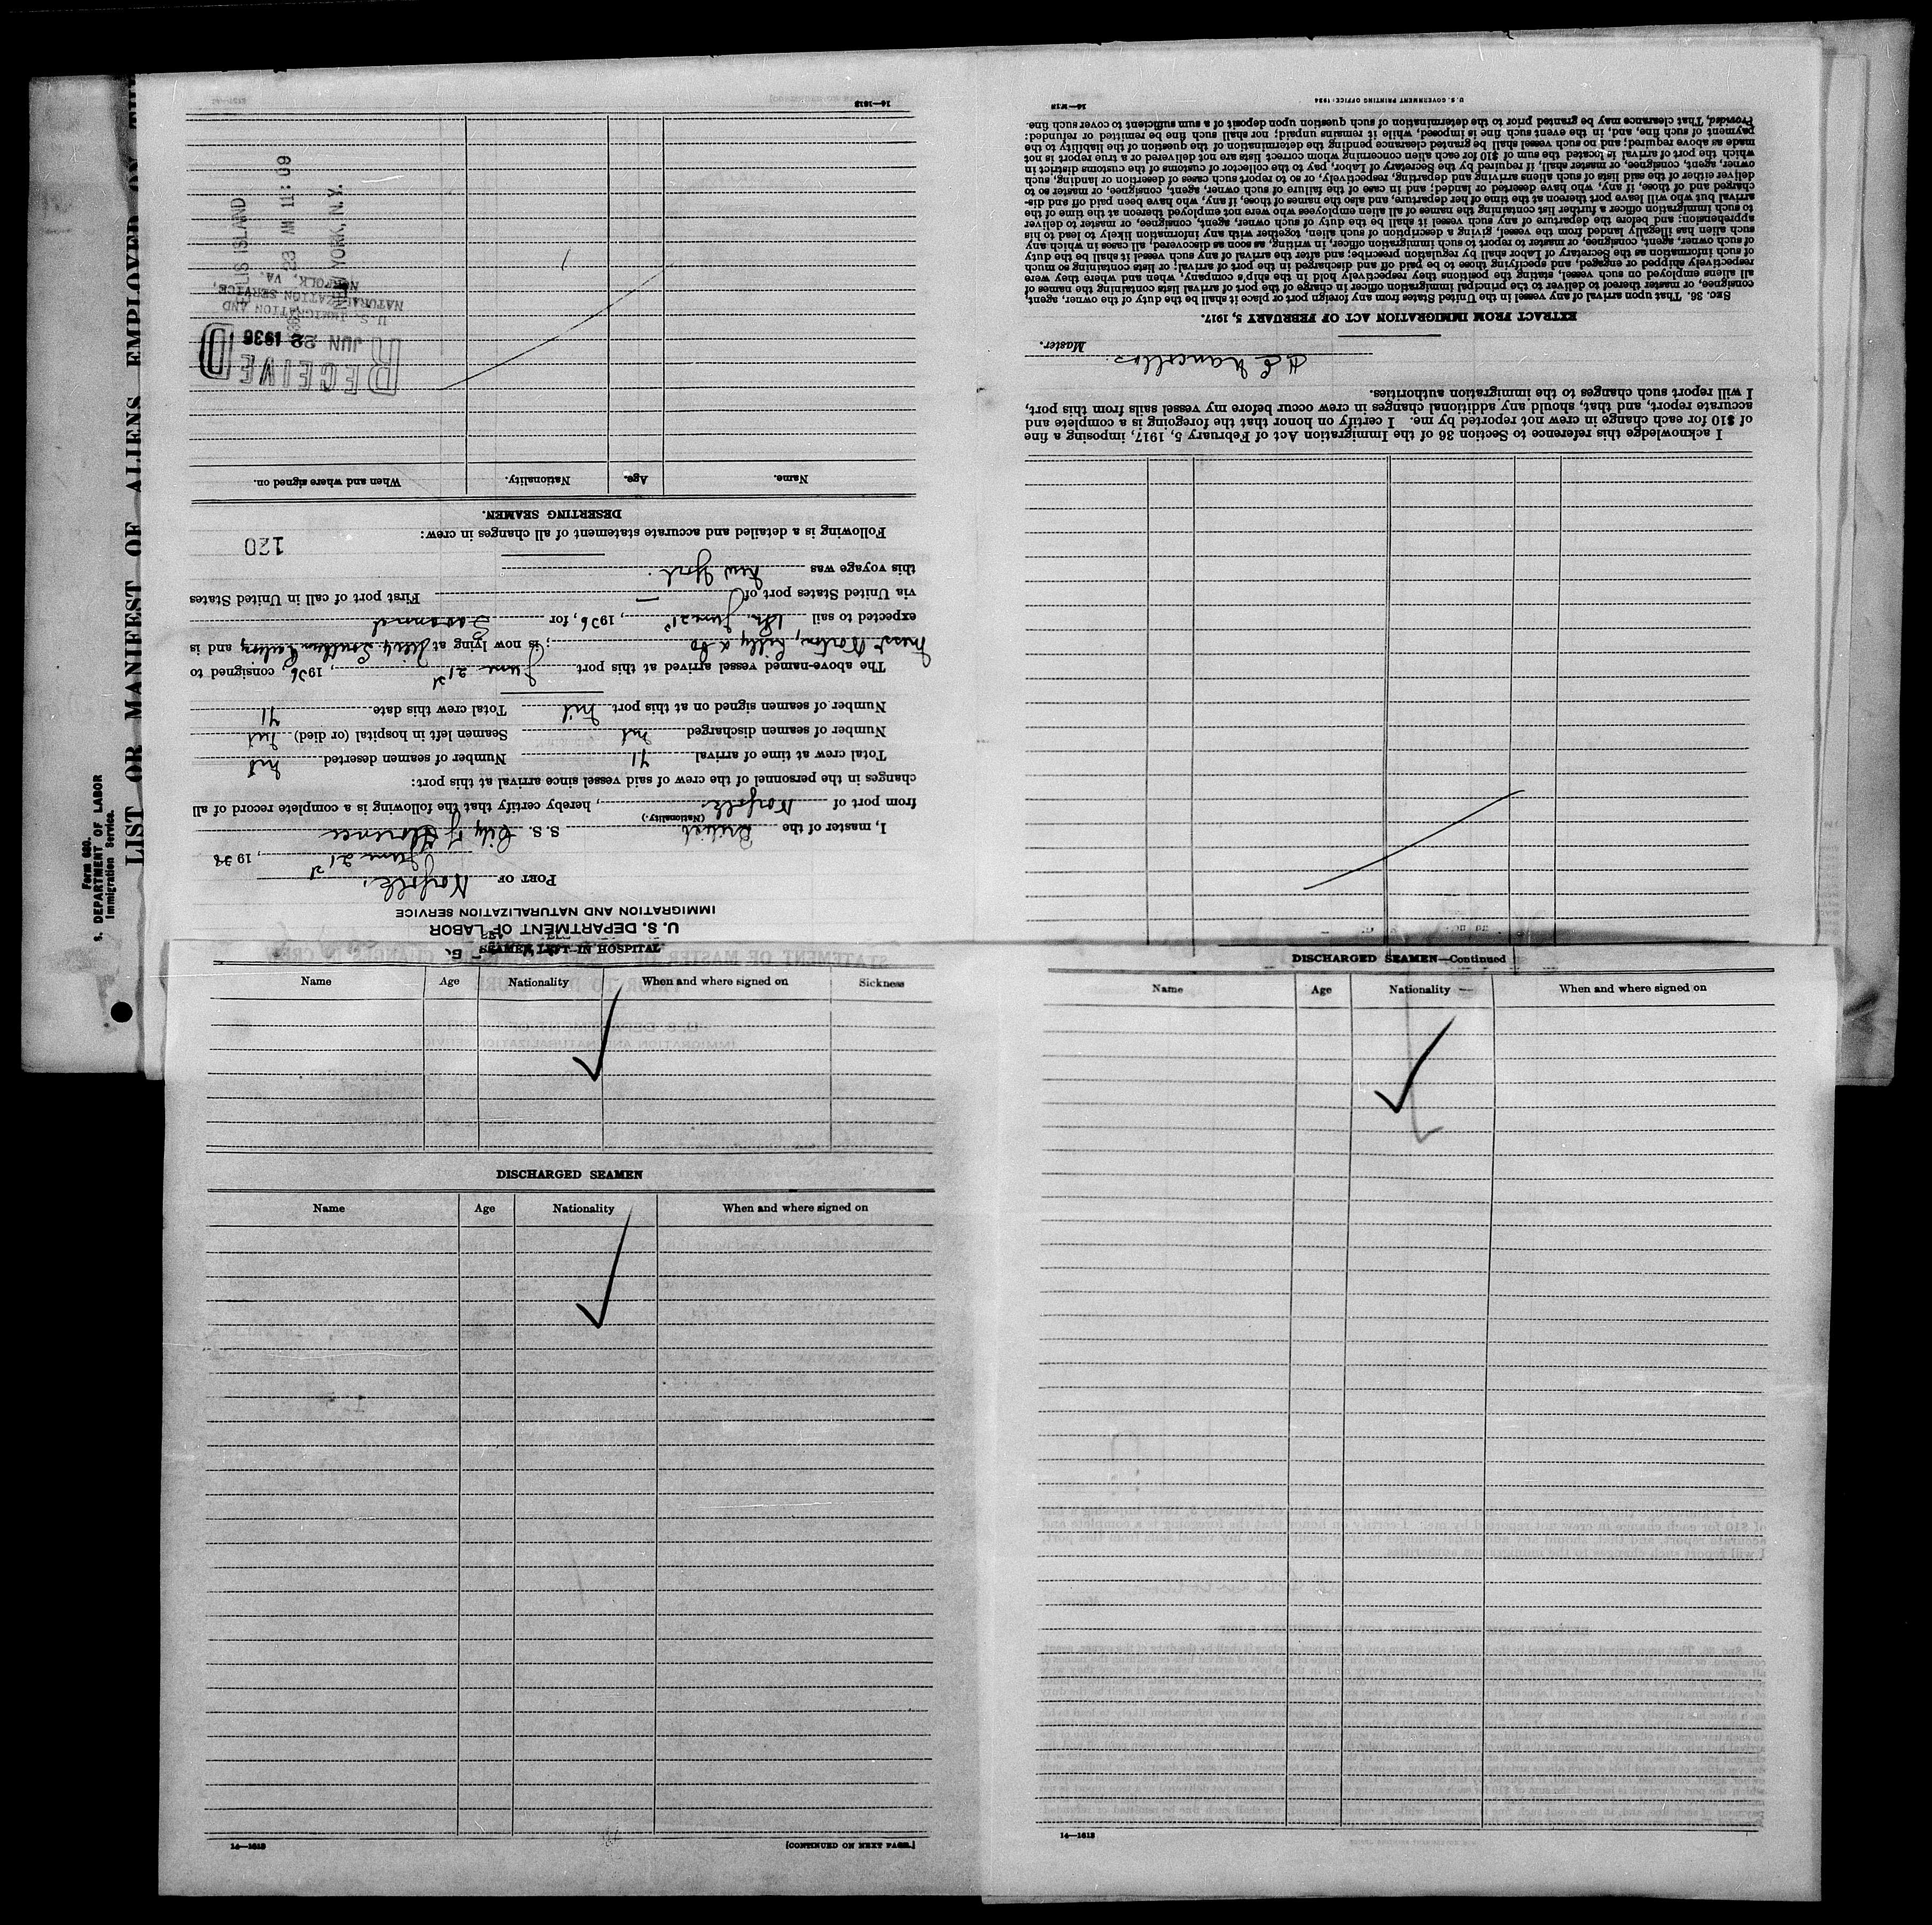 Form 680.
S. DEPARTMENT OF LABOR
Immigration Service.
LIST OR MANIFEST OF ALIENS EMPLOYED ON TH
U. S. DEPARTMENT OF LABOR
IMMIGRATION AND NATURALIZATION SERVICE
PORT OF Norfolk,
June 21st, 1936
I, master of the British S.S. City of Florence
(Nationality.)
from port of Norfolk, hereby certify that the following is a complete record of all
changes in the personnel of the crew of said vessel since arrival at this port:
Total crew at time of arrival 71 Number of seamen deserted Nil
Number of seamen discharged Nil Seamen left in hospital (or died) Nil
Number of seamen signed on at this port Nil Total crew this date 71
The above-named vessel arrived at this port June 21st, 1936, consigned to
Messrs Norton, Lilly & Co; is now lying at Southern and is
expected to sail June 21st, 1936, for
via United States port of — First port of call in United States
this voyage was New York.
Following is a detailed and accurate statement of all changes in crew:
120
DESERTING SEAMEN.
Name. Age. Nationality. When and where signed on.
RECEIVED
JUN 22 1936
U. S. IMMIGRATION AND
NATURALIZATION SERVICE,
NORFOLK, VA.
ELLIS ISLAND
23 AM 11:09
NEW YORK, N.Y.
14—1613
I acknowledge this reference to Section 36 of the Immigration Act of February 5, 1917, imposing a fine
of $10 for each change in crew not reported by me. I certify on honor that the foregoing is a complete and
accurate report, and that, should any additional changes in crew occur before my vessel sails from this port,
I will report such changes to the immigration authorities.
Master.
EXTRACT FROM IMMIGRATION ACT OF FEBRUARY 5, 1917.
SEC. 36. That upon arrival of any vessel in the United States from any foreign port or place it shall be the duty of the owner, agent,
consignee, or master thereof to deliver to the principal immigration officer in charge of the port of arrival lists containing the names of
all aliens employed on such vessel, stating the positions they respectively hold in the ship's company, when and where they were
respectively shipped or engaged, and specifying those to be paid off and discharged in the port of arrival; or lists containing so much
of such information as the Secretary of Labor shall by regulation prescribe; and after the arrival of any such vessel it shall be the duty
of such owner, agent, consignee, or master to report to such immigration officer, in writing, as soon as discovered, all cases in which any
such alien has illegally landed from the vessel, giving a description of such alien, together with any information likely to lead to his
apprehension; and before the departure of any such vessel it shall be the duty of such owner, agent, consignee, or master to deliver
to such immigration officer a further list containing the names of all alien employees who were not employed thereon at the time of the
arrival but who will leave port thereon at the time of her departure, and also the names of those, if any, who have been paid off and dis-
charged and of those, if any, who have deserted or landed; and in case of the failure of such owner, agent, consignee, or master so to
deliver either of the said lists of such aliens arriving and departing, respectively, or so to report such cases of desertion or landing, such
owner, agent, consignee, or master shall, if required by the Secretary of Labor, pay to the collector of customs of the customs district in
which the port of arrival is located the sum of $10 for each alien concerning whom correct lists are not delivered or a true report is not
made as above required; and no such vessel shall be granted clearance pending the determination of the question of the liability to the
payment of such fine, and, in the event such fine is imposed, while it remains unpaid; nor shall such fine be remitted or refunded:
Provided, That clearance may be granted prior to the determination of such question upon deposit of a sum sufficient to cover such fine.
U. S. GOVERNMENT PRINTING OFFICE: 1934
SEAMEN LEFT IN HOSPITAL
Name Age Nationality When and where signed on Sickness
DISCHARGED SEAMEN
Name Age Nationality When and where signed on
14—1613
[CONTINUED ON NEXT PAGE.]
DISCHARGED SEAMEN—Continued
Name Age Nationality When and where signed on
14—1613